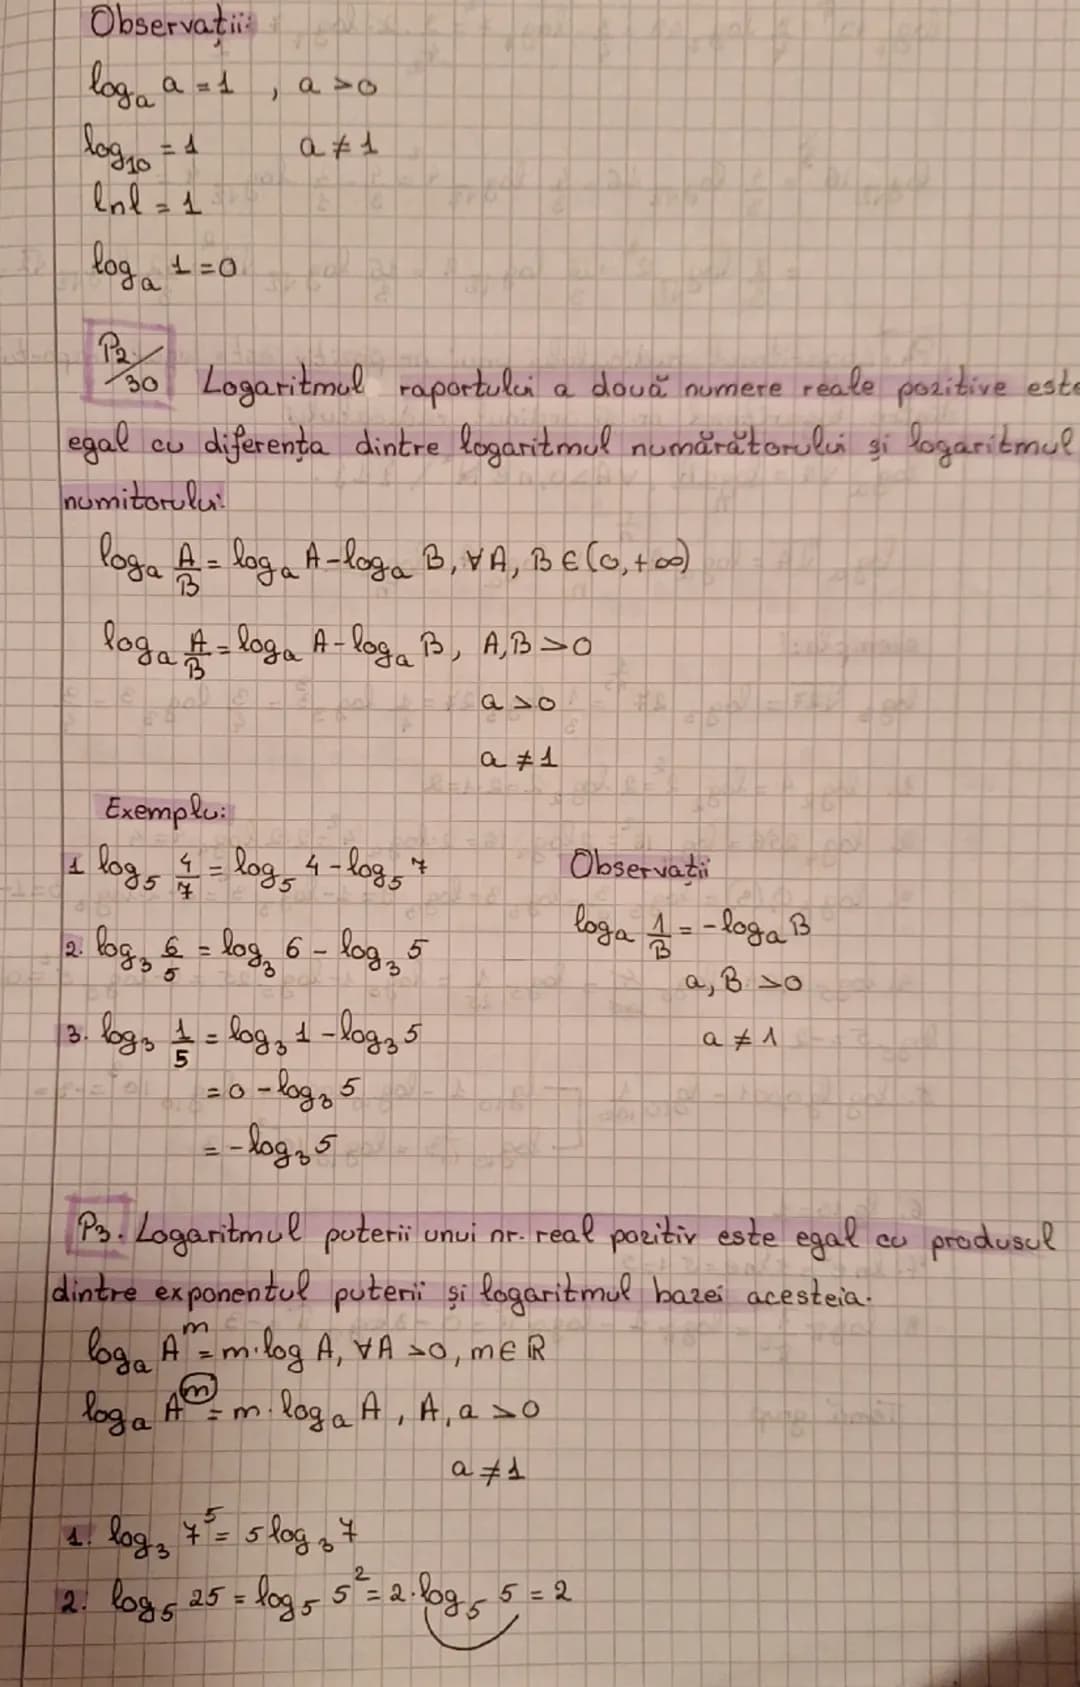 Observații:
logₐ a = 1 , a > 0
log₁₀ = 1 a ≠ 1
lnl = 1
logₐ 1 = 0
P2./30 Logaritmul raportului a două numere reale pozitive este
egal cu diferența dintre logaritmul numărătorului și logaritmul
numitorului:
logₐ A/B = logₐ A - logₐ B, ∀ A, B ∈ (0, +∞)
logₐ A/B = logₐ A - logₐ B, A, B > 0
a > 0
a ≠ 1
Exemplu:
1 log₅ 4/7 = log₅ 4 - log₅ 7
2. log₃ 6/5 = log₃ 6 - log₃ 5
3. log₃ 1/5 = log₃ 1 - log₃ 5
= 0 - log₃ 5
= - log₃ 5
Observații
logₐ 1/B = - logₐ B
a, B > 0
a ≠ 1
P3. Logaritmul puterii unui nr. real pozitiv este egal cu produsul
dintre exponentul puterii și logaritmul bazei acesteia.
logₐ Aᵐ = m·log A, ∀ A > 0, m ∈ ℝ
logₐ Aᵐ = m · logₐ A , A, a > 0
a ≠ 1
1. log₃ 7⁵ = 5 log₃ 7
2. log₅ 25 = log₅ 5² = 2·log₅ 5 = 2